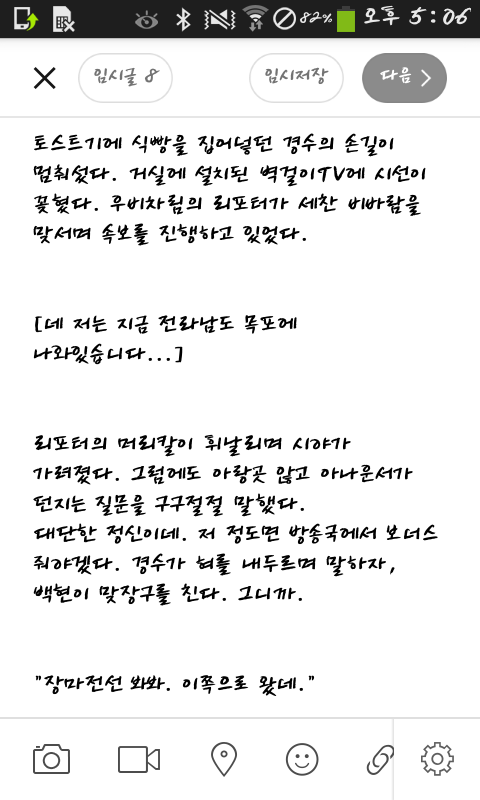 82% 오후 5:06
임시글 8 임시저장 다음
토스트기에 식빵을 집어넣던 경수의 손길이
멈춰섰다. 거실에 설치된 벽걸이TV에 시선이
꽂혔다. 우비차림의 리포터가 세찬 비바람을
맞서며 속보를 진행하고 있었다.
[네 저는 지금 전라남도 목포에
나와있습니다...]
리포터의 머리칼이 휘날리며 시야가
가려졌다. 그럼에도 아랑곳 않고 아나운서가
던지는 질문을 구구절절 말했다.
대단한 정신이네. 저 정도면 방송국에서 보너스
줘야겠다. 경수가 혀를 내두르며 말하자,
백현이 맞장구를 친다. 그니까.
"장마전선 봐봐. 이쪽으로 왔네."